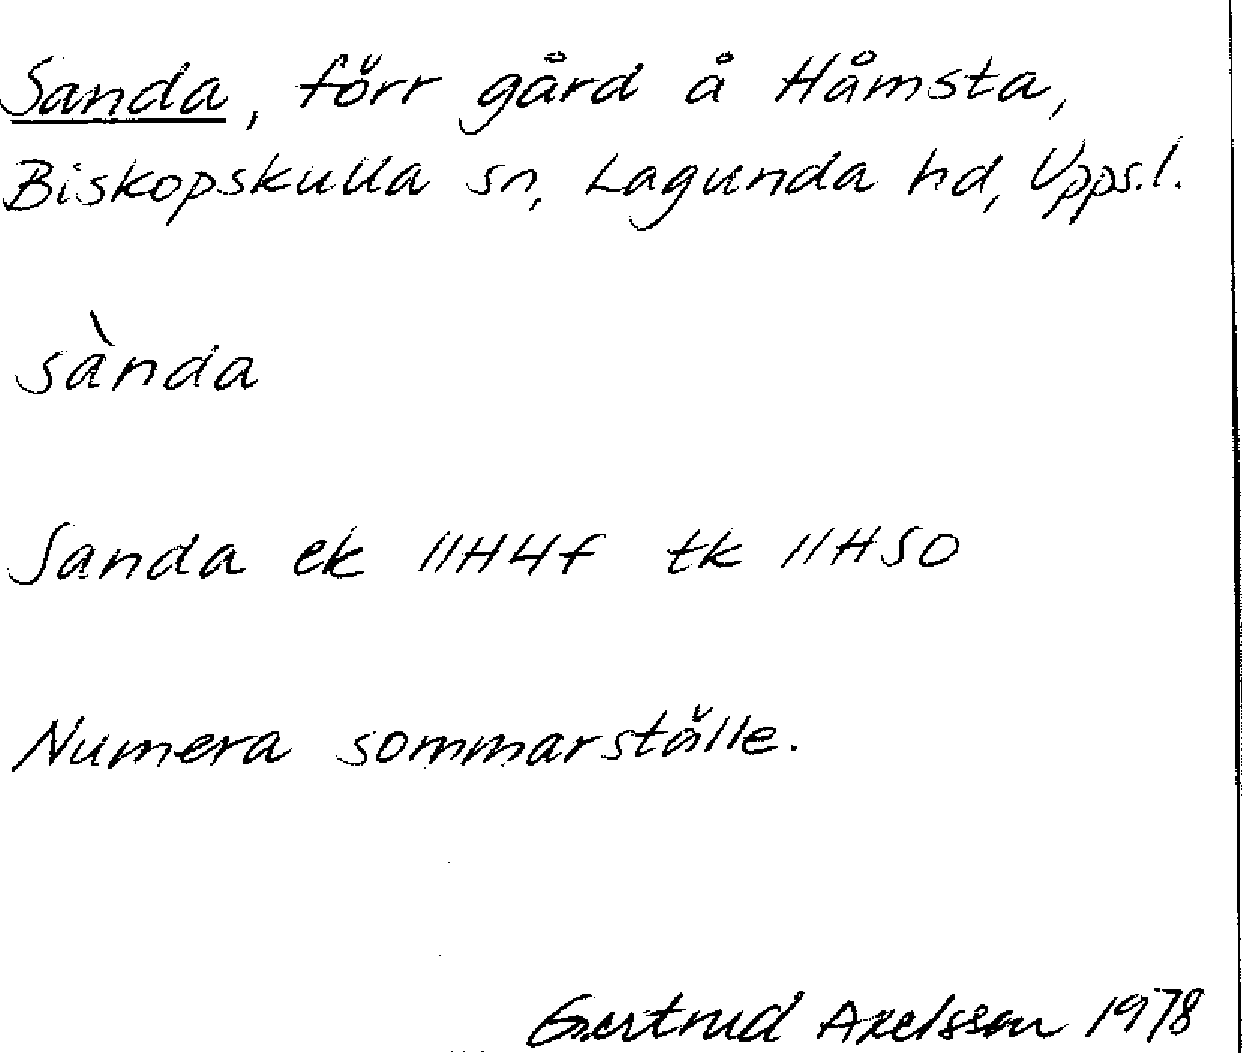 Sanda, förr gård å Håmsta,
Biskopskulla sn, Lagunda hd, Upps.l.
sànda
Sanda ek 11H4f tk 11HSO
Numera sommarställe.
Gertrud Axelsson 1978